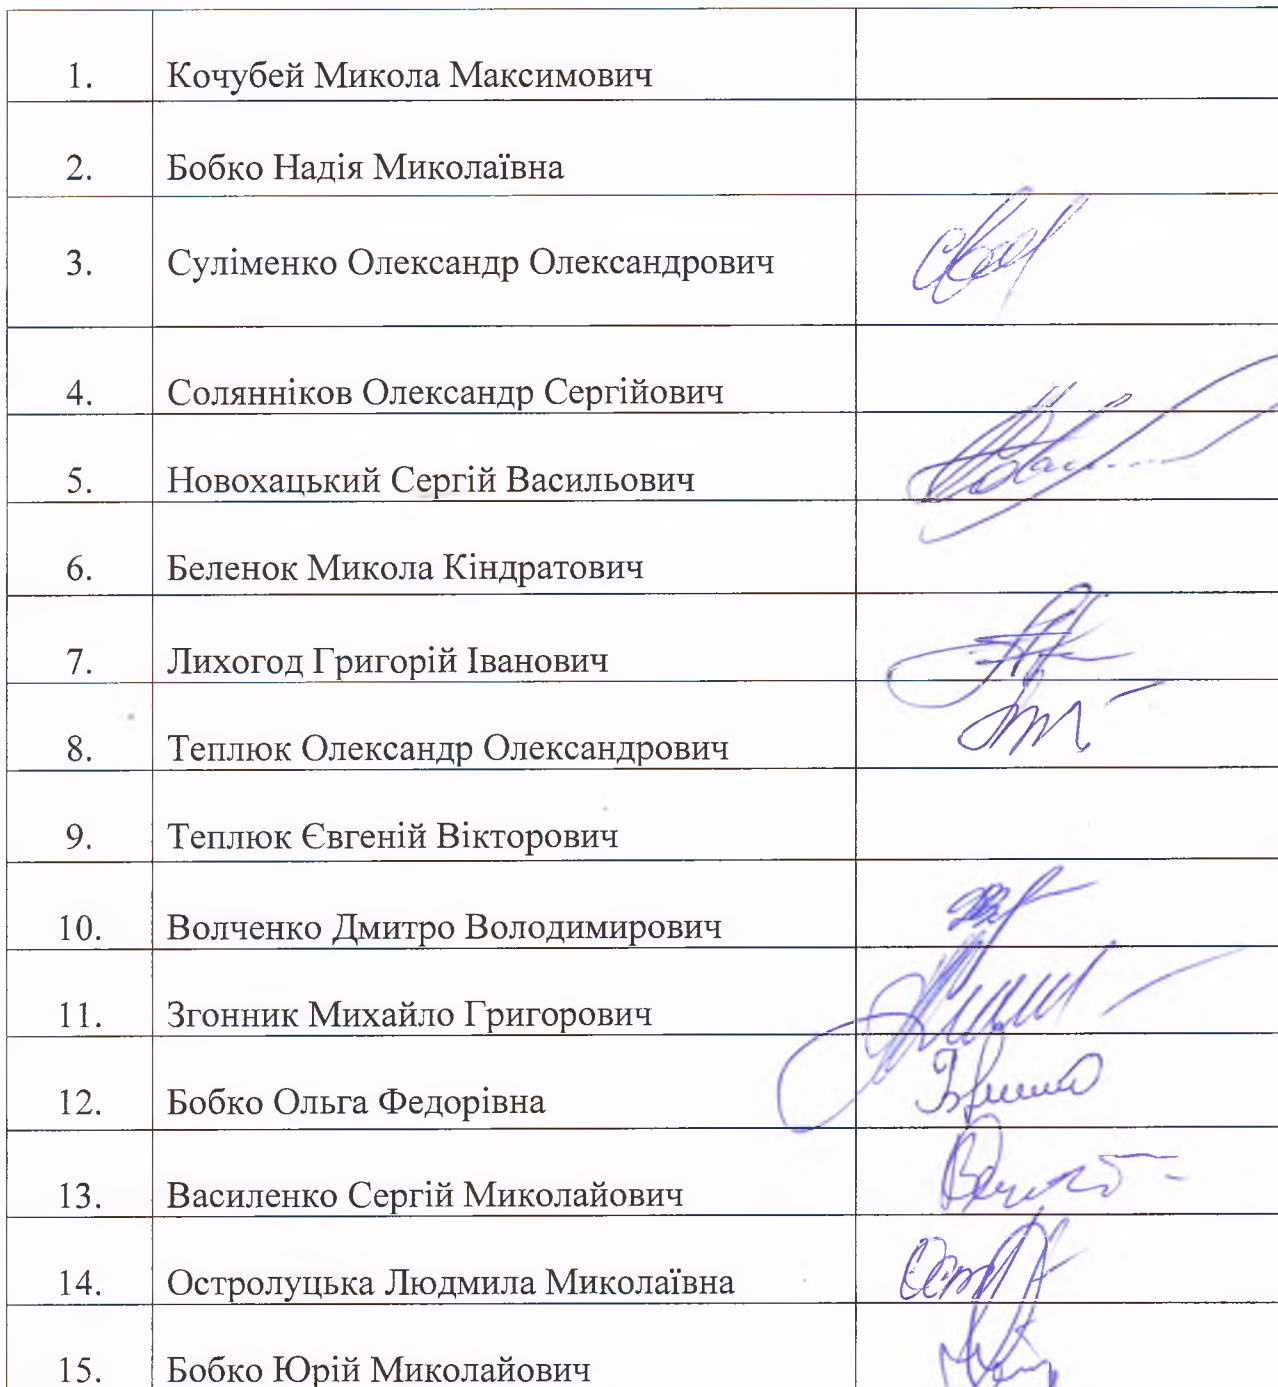 1. Кочубей Микола Максимович
2. Бобко Надія Миколаївна
3. Суліменко Олександр Олександрович
4. Солянніков Олександр Сергійович
5. Новохацький Сергій Васильович
6. Беленок Микола Кіндратович
7. Лихогод Григорій Іванович
8. Теплюк Олександр Олександрович
9. Теплюк Євгеній Вікторович
10. Волченко Дмитро Володимирович
11. Згонник Михайло Григорович
12. Бобко Ольга Федорівна
13. Василенко Сергій Миколайович
14. Остролуцька Людмила Миколаївна
15. Бобко Юрій Миколайович